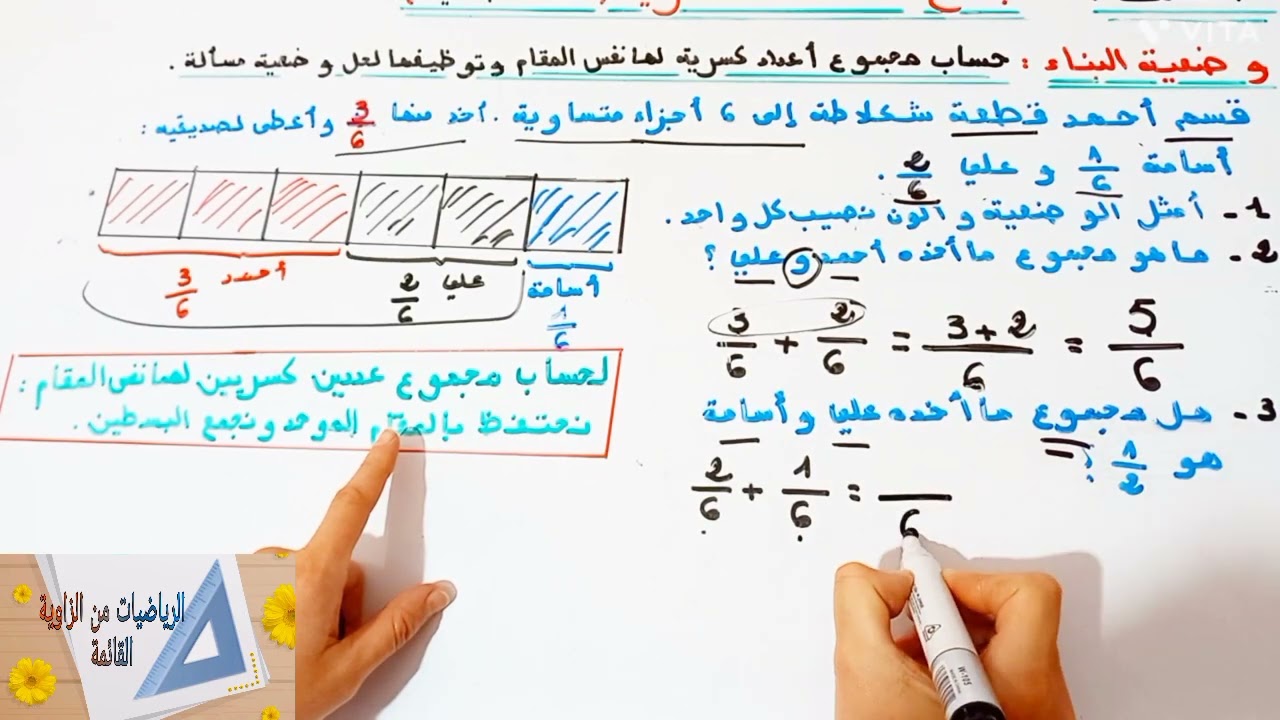 VITA
وضعية البناء : حساب مجموع أعداد كسرية لها نفس المقام وتوظيفها لحل وضعية مسألة .
قسم أحمد قطعة شكلاطة إلى 6 أجزاء متساوية . أخذ منها 3/6 وأعطى لصديقيه :
أسامة 1/6 و علي 2/6 .
1 - أمثل الوضعية و ألون نصيب كل واحد .
2 - ما هو مجموع ما أخذه أحمد و علي ؟
3/6 + 2/6 = 3+2/6 = 5/6
3 - هل مجموع ما أخذه علي و أسامة
هو 1/2 ؟
2/6 + 1/6 = /6
أحمد 3/6
علي 2/6
أسامة 1/6
لحساب مجموع عددين كسريين لهما نفس المقام :
نحتفظ بالمقام الموحد و نجمع البسطين .
الرياضيات من الزاوية
القائمة
W-105